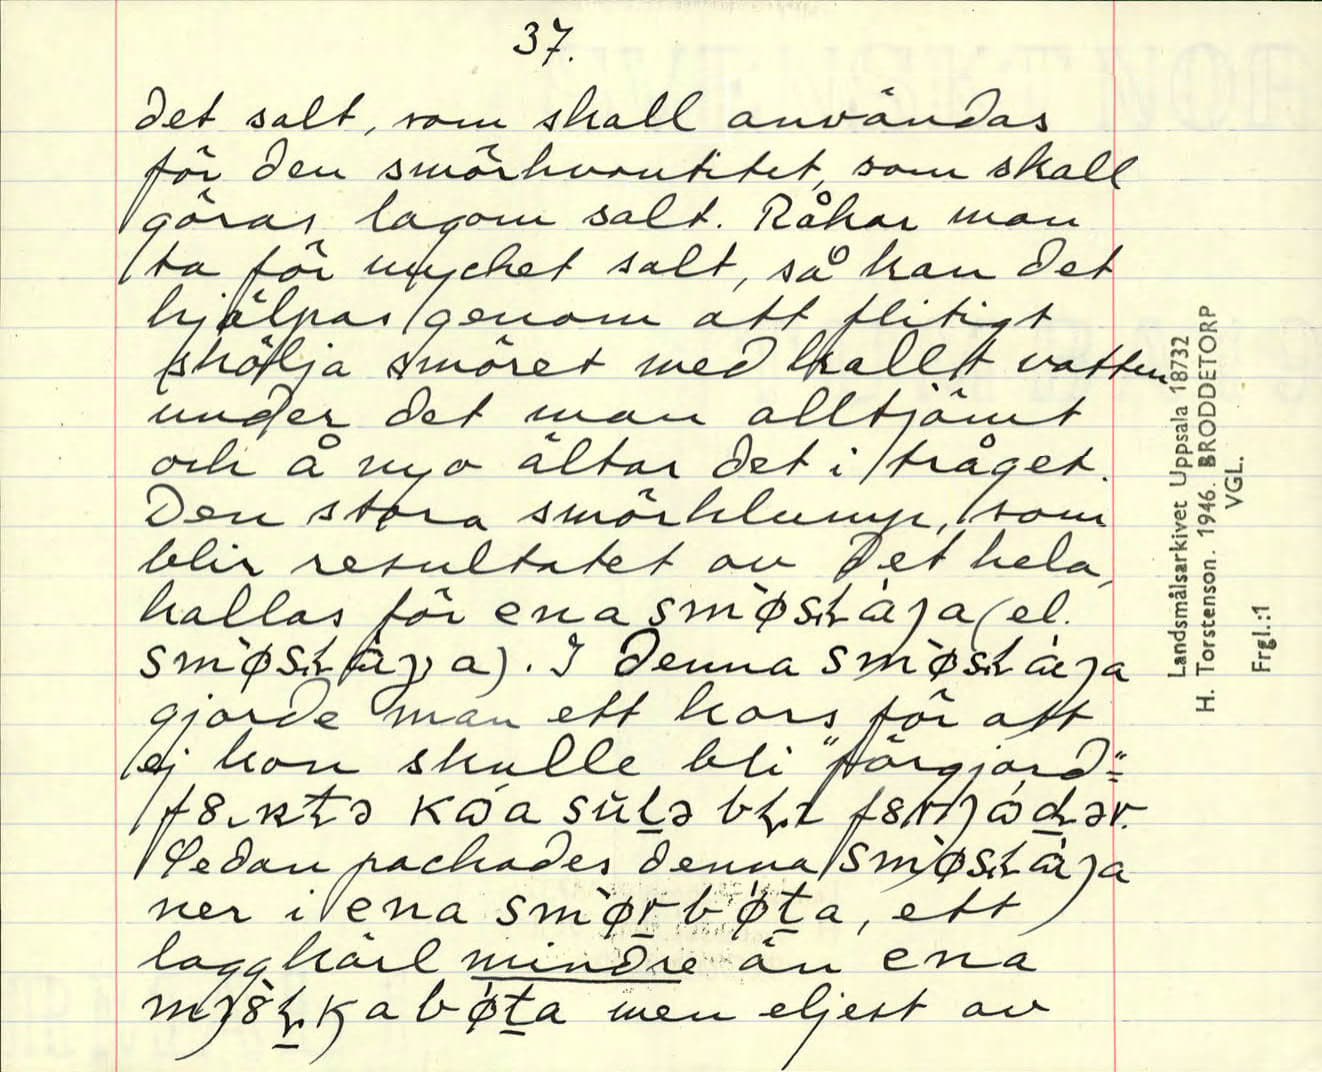 37.
det salt, som skall användas
för den smörkvantitet, som skall
göras lagom salt. Råkar man
ta för mycket salt, så kan det
hjälpas genom att flitigt
skölja smöret med kallt vatten
under det man alltjämt
och å nyo ältar det i tråget.
Den stora smörklump, som
blir resultatet av det hela,
kallas för ena
(el.
). I denna
gjorde man ett kors för att
ej hon skulle bli "förgjord"=
Sedan packades denna
ner i ena
, ett
laggkärl mindre än ena
men eljest av
Landsmålsarkivet Uppsala 18732
H. Torstenson. 1946. BRODDETORP
VGL.
Frgl.:1